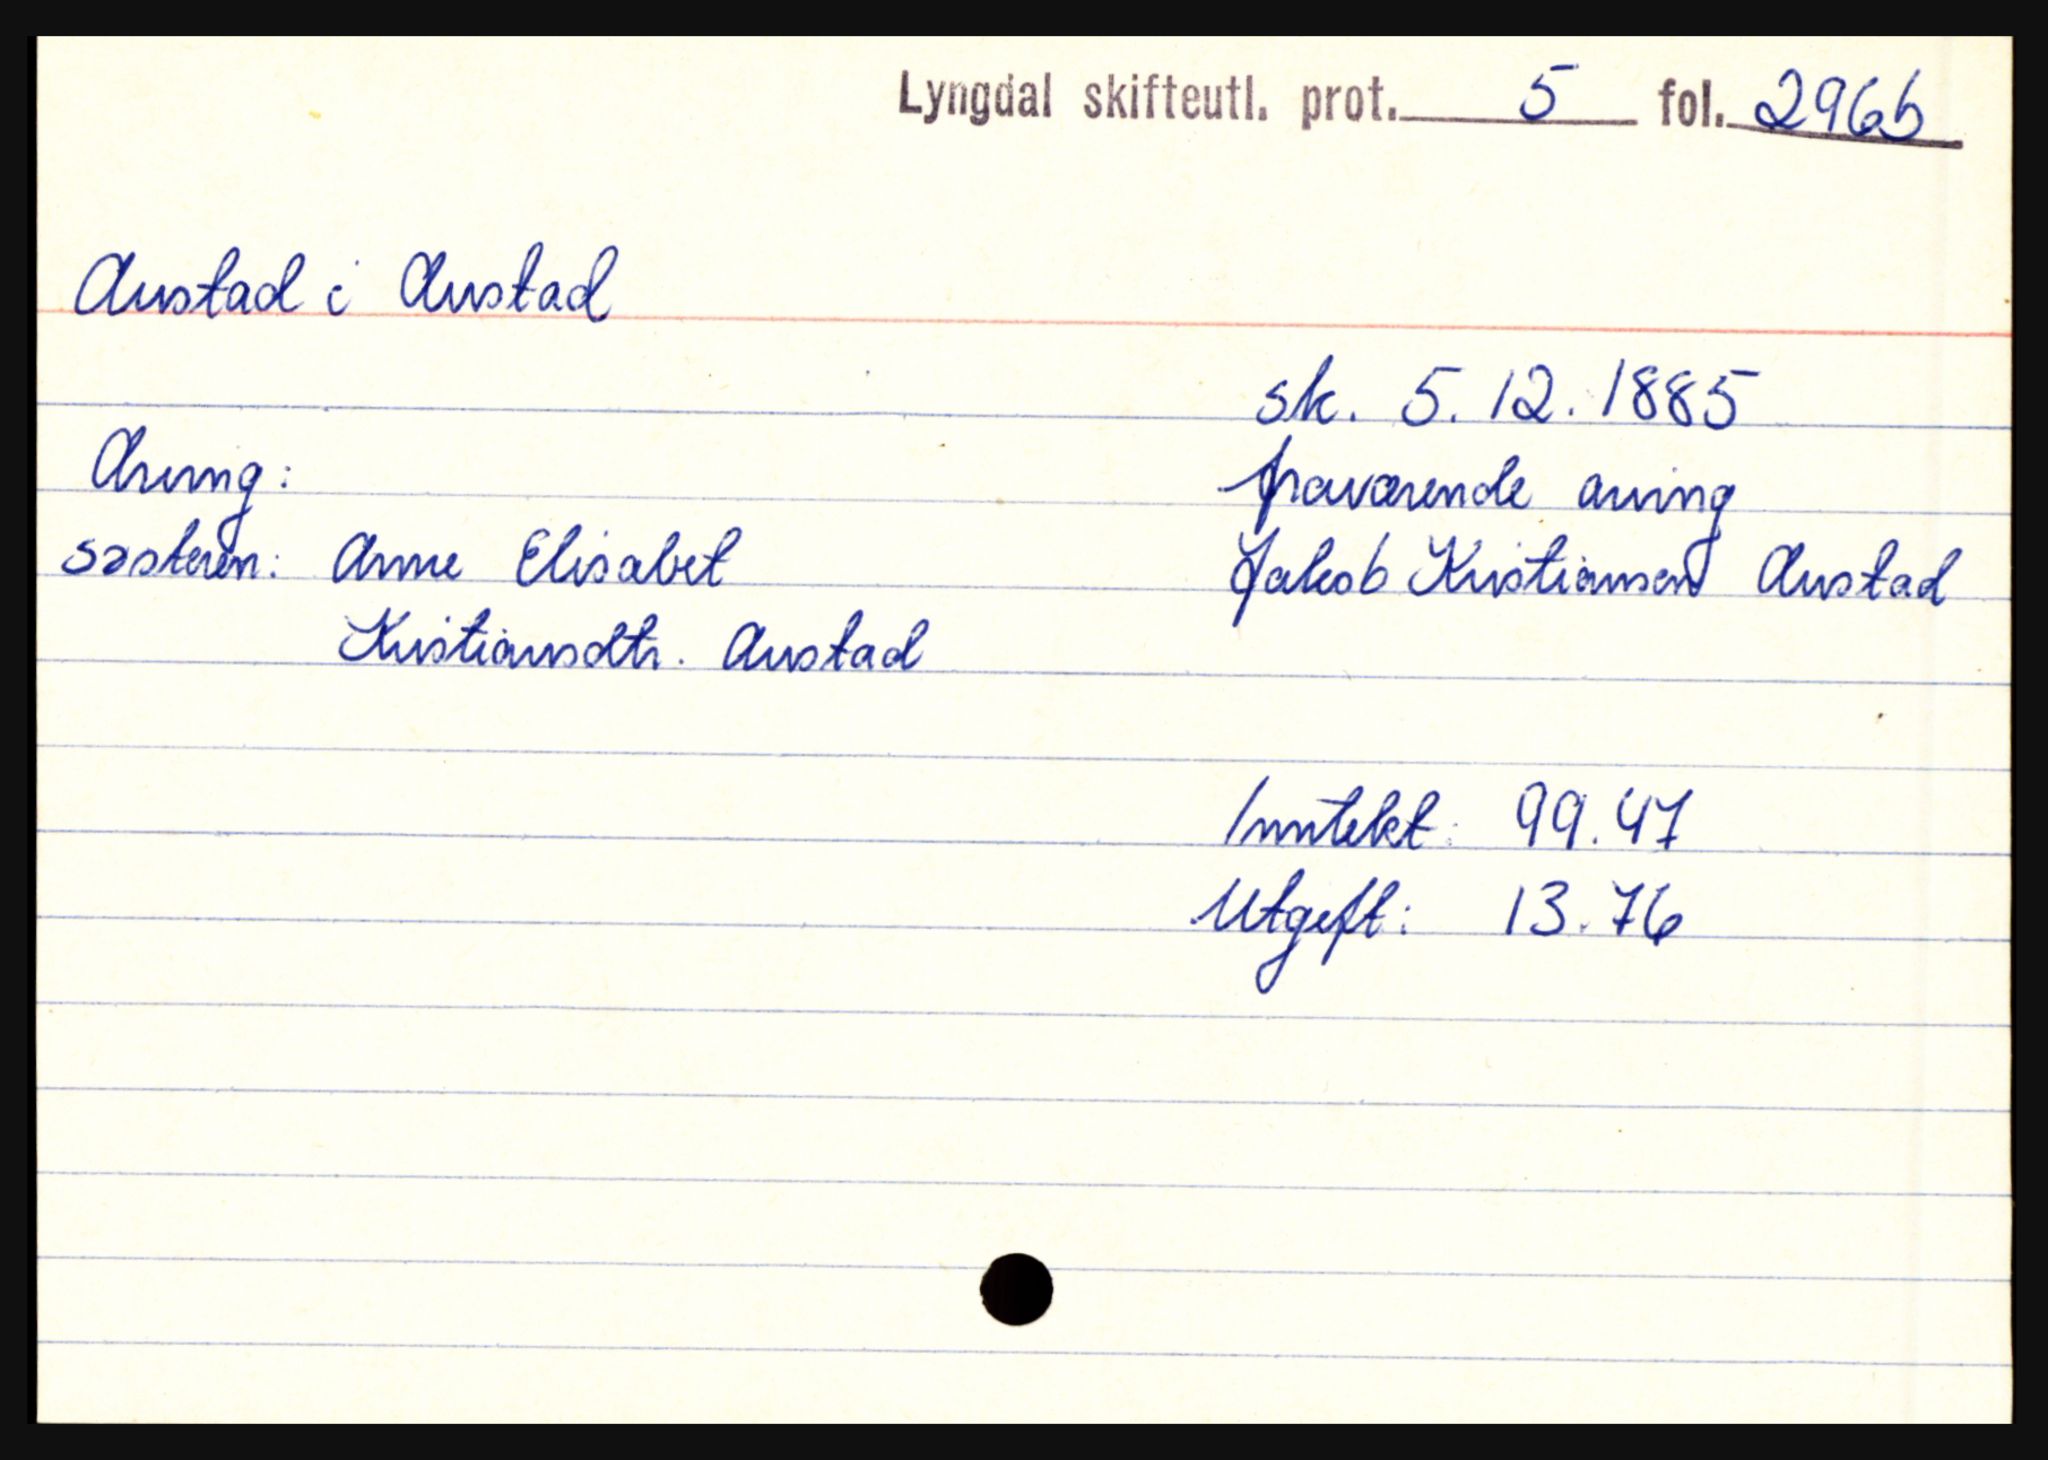 Lyngdal skifteutl. prot. 5 fol. 296b
Austad i Austad
sk. 5.12.1885
Arving:
fraværende arving
søsteren: Anne Elisabet
Jakob Kristiansen Austad
Kristiansdtr. Austad
Inntekt: 99.47
Utgift: 13.76